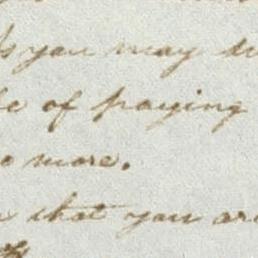 you may
of paying
more.
that you are